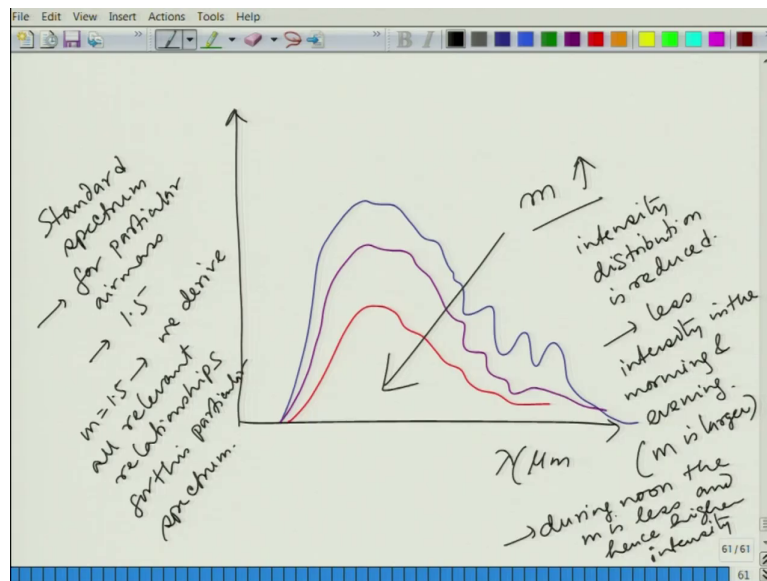 File Edit View Insert Actions Tools Help
B I
Standard
spectrum
→ for particular
airmass
→ 1.5
m=1.5 → we derive
all relevant
relationships
for this particular
spectrum.
m ↑
intensity
distribution
is reduced.
→ less
intensity in the
morning &
evening.
(m is larger)
→ during noon the
m is less and
hence higher
intensity
λ/μm
61/61
61